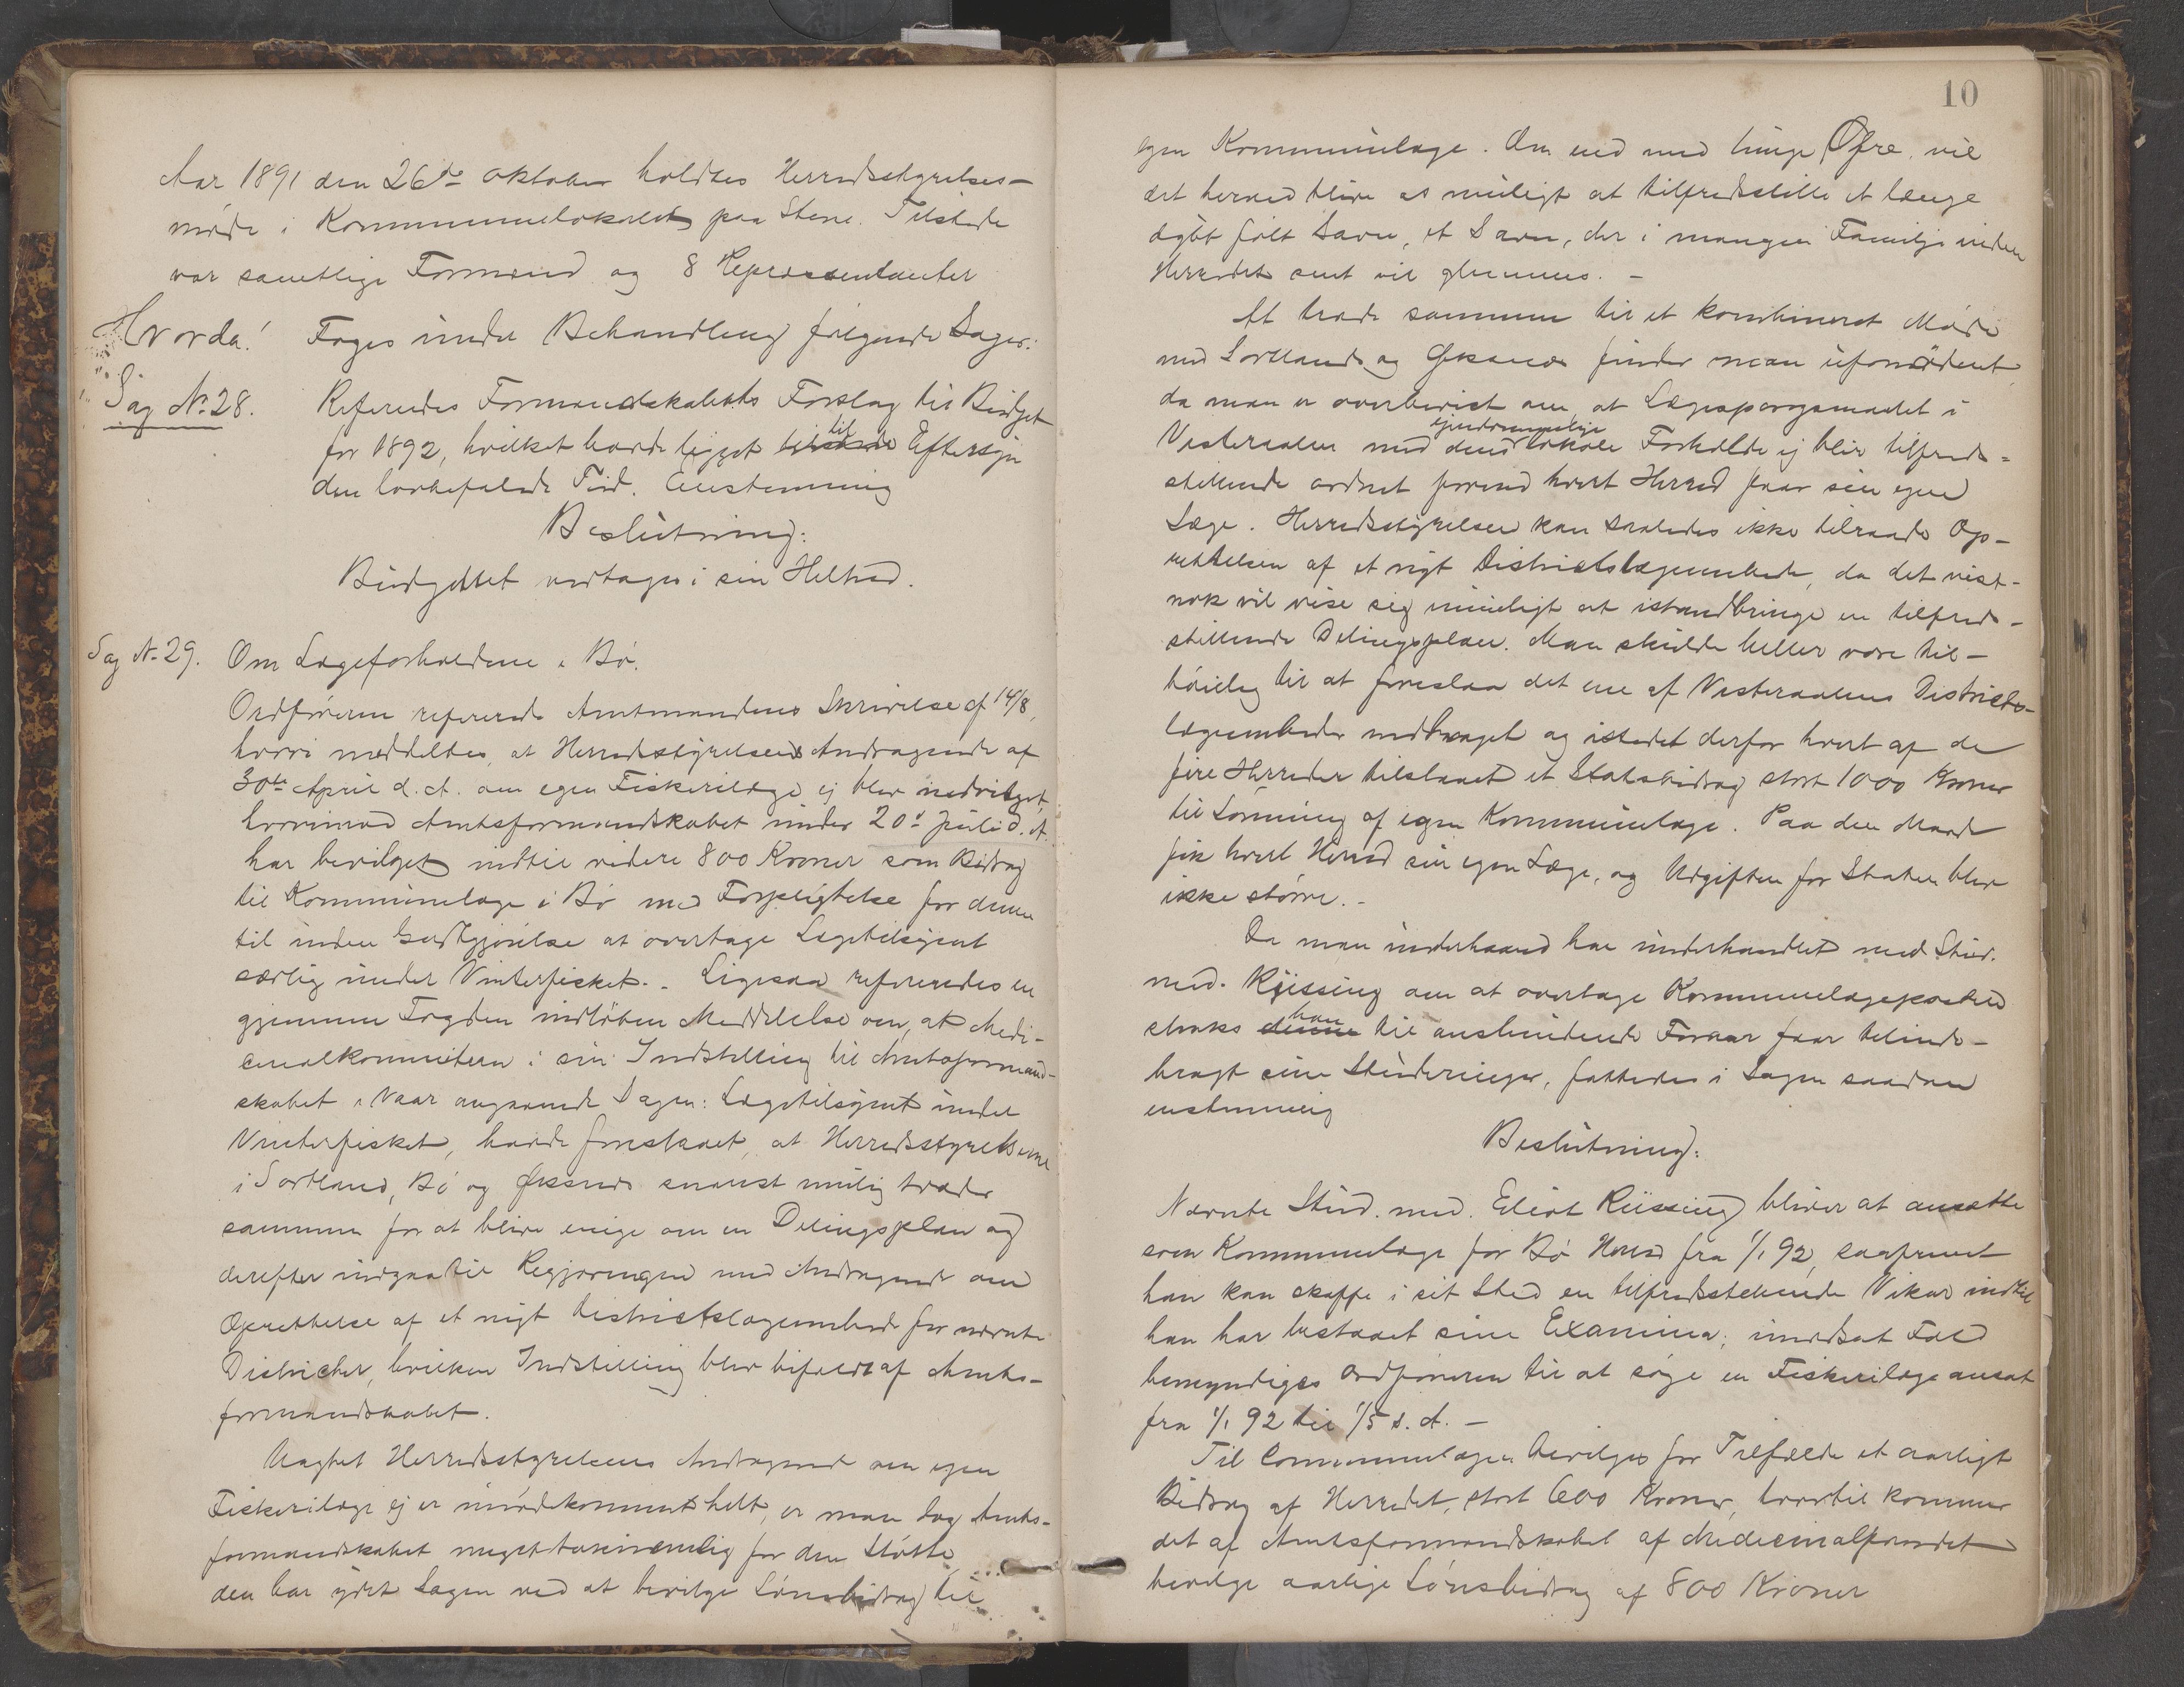 Aar 1891 den 26de oktober holdtes Herredsstyrelses-
møde i Kommunelokalet paa Steine. Tilstede
var samtlige Formænd og 8 Repræsentanter
Hvorda! Toges under Behandling følgende Sager:
Sag No 28. Refereredes Formandskabets Forslag til Budget
for 1892, hvilket havde ligget til Eftersyn
den lovbefalede Tid. Enstemmig
Beslutning:
Budgettet vedtages i sin Helhed.
Sag No 29. Om Lægeforholdene i Bø.
Ordføreren refererede Amtmandens Skrivelse af 14/8,
hvori meddeltes, at Herredsstyrelsens Andragende af
30te April d. A. om egen Fiskerilæge ej blev indvilget,
hvorimod Amtsformandskabet under 20de Juli d. A.
har bevilget indtil videre 800 Kroner som Bidrag
til Kommunelæge i Bø med Forpligtelse for denne
til uden Godtgjørelse at overtage Lægetilsynet
særlig under Vinterfisket. - Ligesaa refereredes en
gjennem Fogden indløben Meddelelse om, at Medi-
cinalkomiteen i sin Indstilling til Amtsformand-
skabet i Vaar angaaende Sagen: Lægetilsynet under
Vinterfisket, havde foreslaaet, at Herredsstyrelserne
i Sortland, Bø og Øksnes snarest mulig træder
sammen for at blive enige om en Delingsplan og
derefter indgaa til Regjeringen med Andragende om
Oprettelse af et nyt Distriktslægeembede for nævnte
Districter, hvilken Indstilling blev bifaldt af Amts-
formandskabet.
Uagtet Herredsstyrelsens Andragende om egen
Fiskerilæge ej er imødekommet helt, er man dog Amts-
formandskabet meget taknemmelig for den Støtte
den har ydet Sagen ved at bevilge Lønsbidrag til
10
egen Kommunelæge. Om end med tunge Ofre, vil
det herved blive os muligt at tilfredsstille et længe
dybt følt Savn, et Savn, der i mangen Familje inden
Herredet sent vil glemmes. -
At træde sammen til et kombineret Møde
med Sortland og Øksnes finder man ufornødent,
da man er overbevist om, at Lægespørgsmaalet i
Vesteraalen med dens eiendommelige lokale Forholde ej blir tilfreds-
stillende ordnet førend hvert Herred faar sin egen
Læge. Herredsstyrelsen kan saaledes ikke tilraade Op-
rettelsen af et nyt Districtslægeembede, da det vist-
nok vil vise sig umuligt at istandbringe en tilfreds-
stillende Delingsplan. Man skulde heller være til-
bøielig til at foreslaa det ene af Vesteraalens Districts-
lægeembeder inddraget og istedet derfor hvert af de
fire Herreder tilstaaet et Statsbidrag stort 1000 Kroner
til Lønning af egen Kommunelæge. Paa den Maade
fik hvert Herred sin egen Læge, og Udgiften for Staten blev
ikke større. -
Da man underhaand har underhandlet med Stud.
med. Riissing om at overtage Kommunelægeposten
straks han til anstundende Foraar faar tilende-
bragt sine Studeringer, fattedes i Sagen saadan
enstemmig
Beslutning:
Nævnte Stud. med. Eliot Riissing bliver at ansætte
som Kommunelæge for Bø Herred fra 1/1 92, saafremt
han kan skaffe i sit Sted en tilfredsstillende Vikar indtil
han har bestaaet sine Examina; imodsat Fald
bemyndiges Ordføreren til at søge en Fiskerilæge ansat
fra 1/1 92 til 1/5 s. A. -
Til Communelægen bevilges for Tilfælde et aarligt
Bidrag af Herredet, stort 600 Kroner, hvortil kommer
det af Amtsformandskabet af Medicinalfondet
bevilge aarlige Lønsbidrag af 800 Kroner